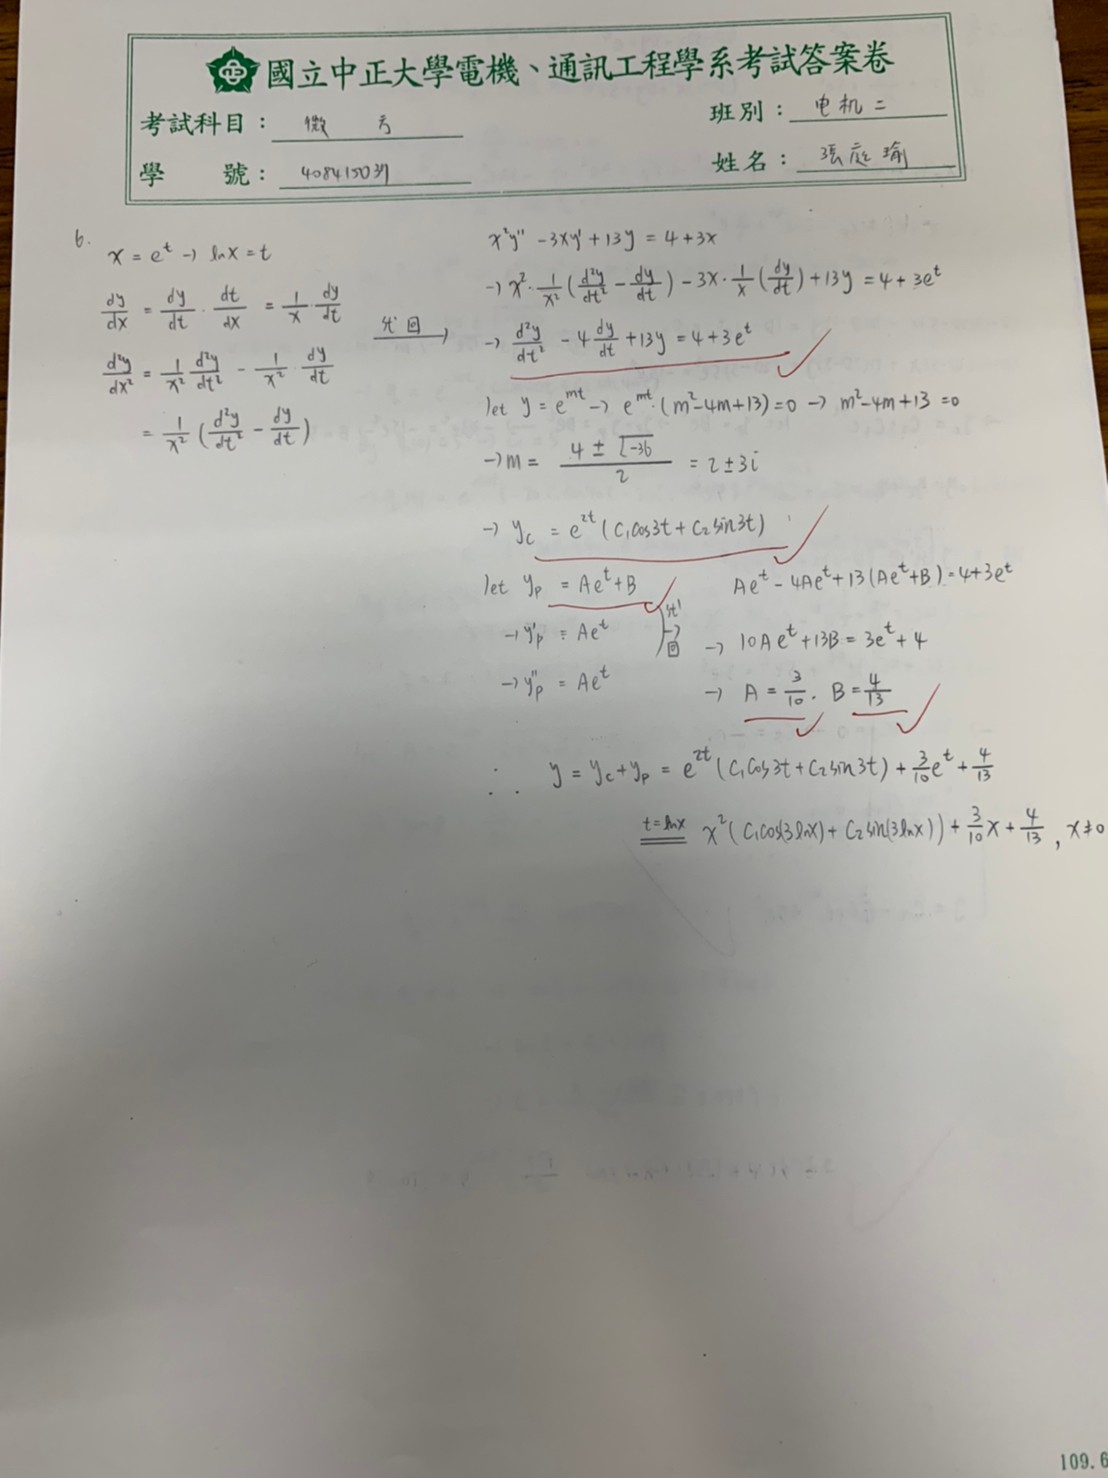 國立中正大學電機、通訊工程學系考試答案卷
考試科目： 微 方
班別： 电机二
學 號： 408415039
姓名： 張庭瑜
6.
x = e^t → lnx = t
dy/dx = dy/dt · dt/dx = 1/x dy/dt
d²y/dx² = 1/x² d²y/dt² - 1/x² · dy/dt
= 1/x² (d²y/dt² - dy/dt)
代回 →
x²y'' - 3xy' + 13y = 4 + 3x
→ x² · 1/x² (d²y/dt² - dy/dt) - 3x · 1/x (dy/dt) + 13y = 4 + 3e^t
→ d²y/dt² - 4 dy/dt + 13y = 4 + 3e^t
let y = e^mt → e^mt · (m² - 4m + 13) = 0 → m² - 4m + 13 = 0
→ m = (4 ± √-36)/2 = 2 ± 3i
→ yc = e^2t (C₁cos3t + C₂sin3t)
let yp = Ae^t + B
→ y'p = Ae^t
→ y''p = Ae^t
代回 →
Ae^t - 4Ae^t + 13(Ae^t + B) = 4 + 3e^t
→ 10Ae^t + 13B = 3e^t + 4
→ A = 3/10 . B = 4/13
∴ y = yc + yp = e^2t (C₁cos3t + C₂sin3t) + 3/10 e^t + 4/13
t = lnx x² (C₁cos(3lnx) + C₂sin(3lnx)) + 3/10 x + 4/13 , x ≠ 0
109.6